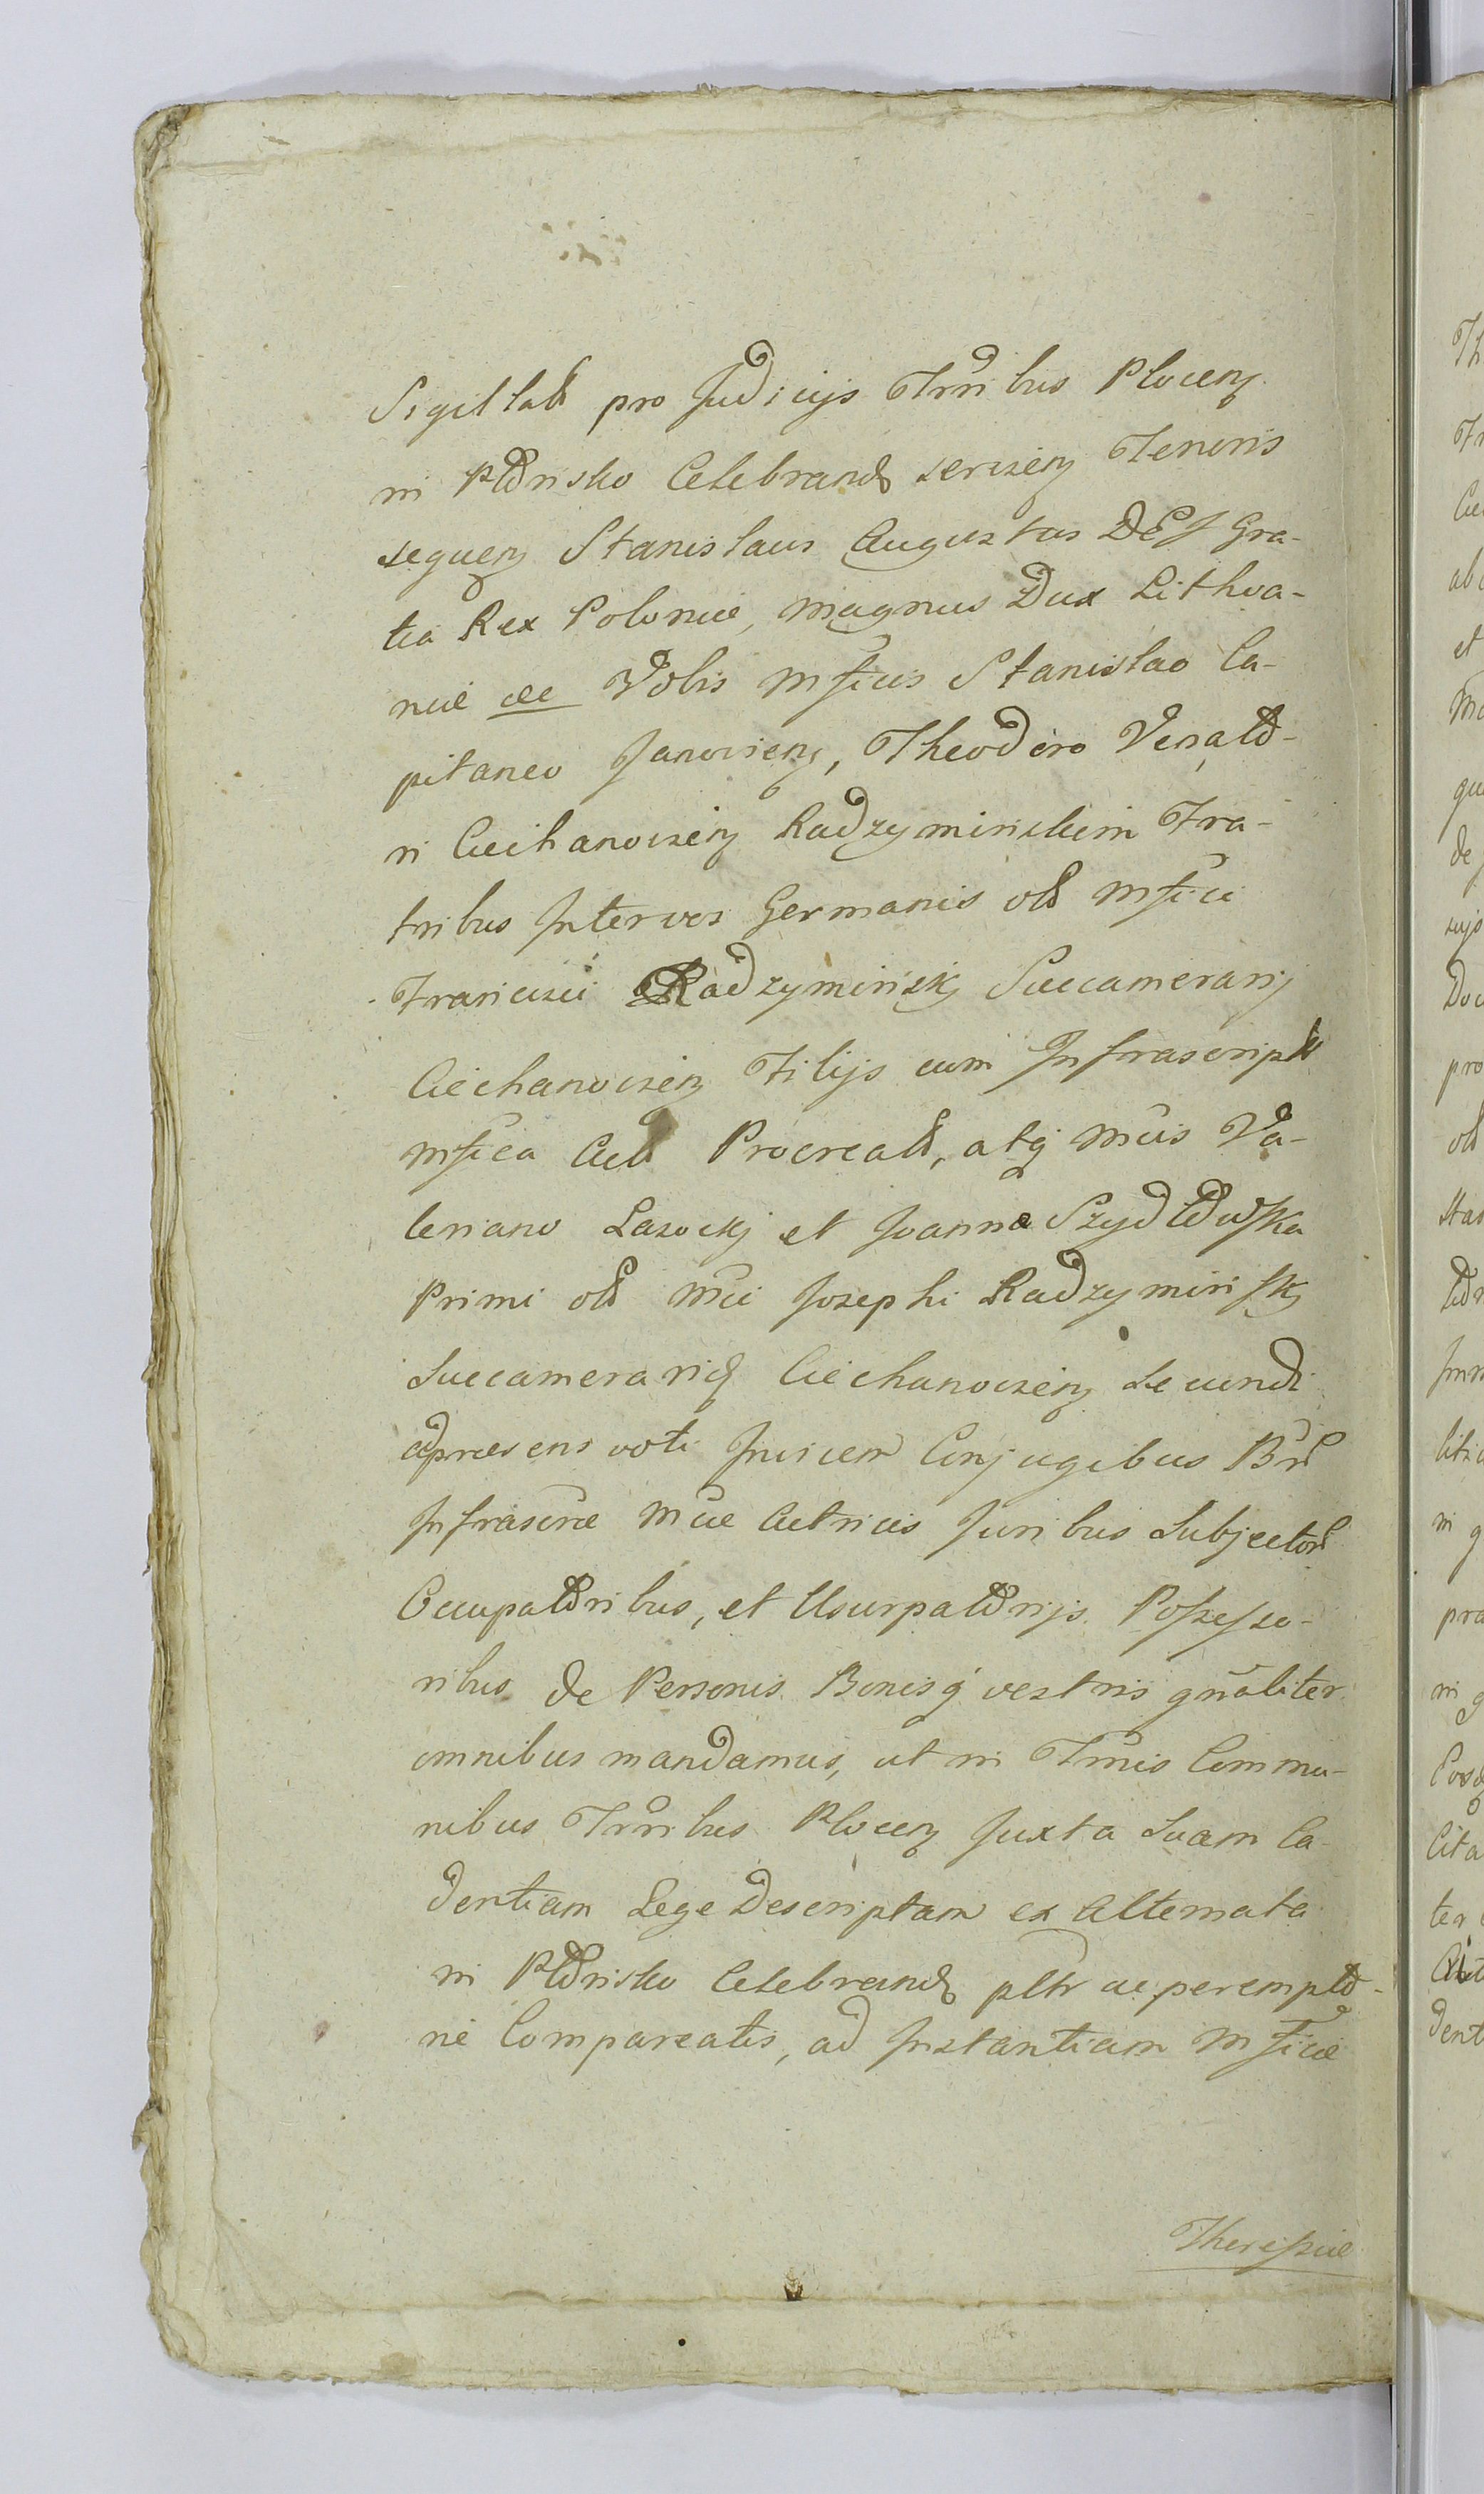 Sigillatt pro Judicijs Trñribus Plocen
in Płonsko Celebrand serien Tenoris
sequen Stanislaus Augustus DEJ Gra-
tia Rex Poloniæ, Magnus Dux Lithva-
niæ etc Vobis Mficis Stanislao Ca-
pitaneo Janovien, Theodoro Venato-
ri Ciechanovien Radzyminskim Fra-
tribus Intervos Germanis olt Mfici
Francisci Radzyminskj Succamerarij
Ciechanovien Filijs cum Infrascript
Mfica Act Procreatt, atq Mcis Va-
leriano Lasockj et Joanna Szydłowska
Primi olt Mci Josephi Radzyminskj
Succamerarid Ciechanovien Secundi
adpræsens voti Invicem Conjugibus Bñr
Infrascræ Mcæ Actricis Juribus Subjector
Occupatoribus, et Usurpatorijs Possesso-
ribus de Personis Bonisq vestris gñaliter
omnibus mandamus, ut in Trmis Commu-
nibus Trñribus Plocen Juxta Suam Ca-
dentiam Lege Descriptam ex Alternata
in Płonsko Celebrand pltr ac perempto-
rie Compareatis, ad Instantiam Mficæ
Theressiæ